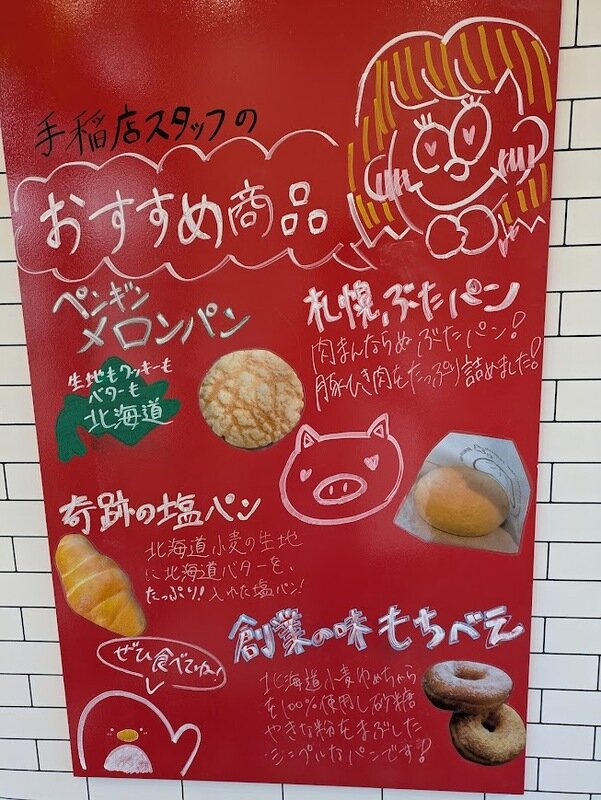 手稲店スタッフの
おすすめ商品
ペンギン
メロンパン
生地もクッキーも
バターも
北海道
札幌ぶたパン
肉まんならぬぶたパン!
豚ひき肉をたっぷり詰めました!
奇跡の塩パン
北海道小麦の生地
に北海道バターを、
たっぷり!入れた塩パン!
創業の味もちべえ
北海道小麦ゆめちから
を100%使用し砂糖
やきな粉をまぶした
シンプルなパンです!
ぜひ食べてね!